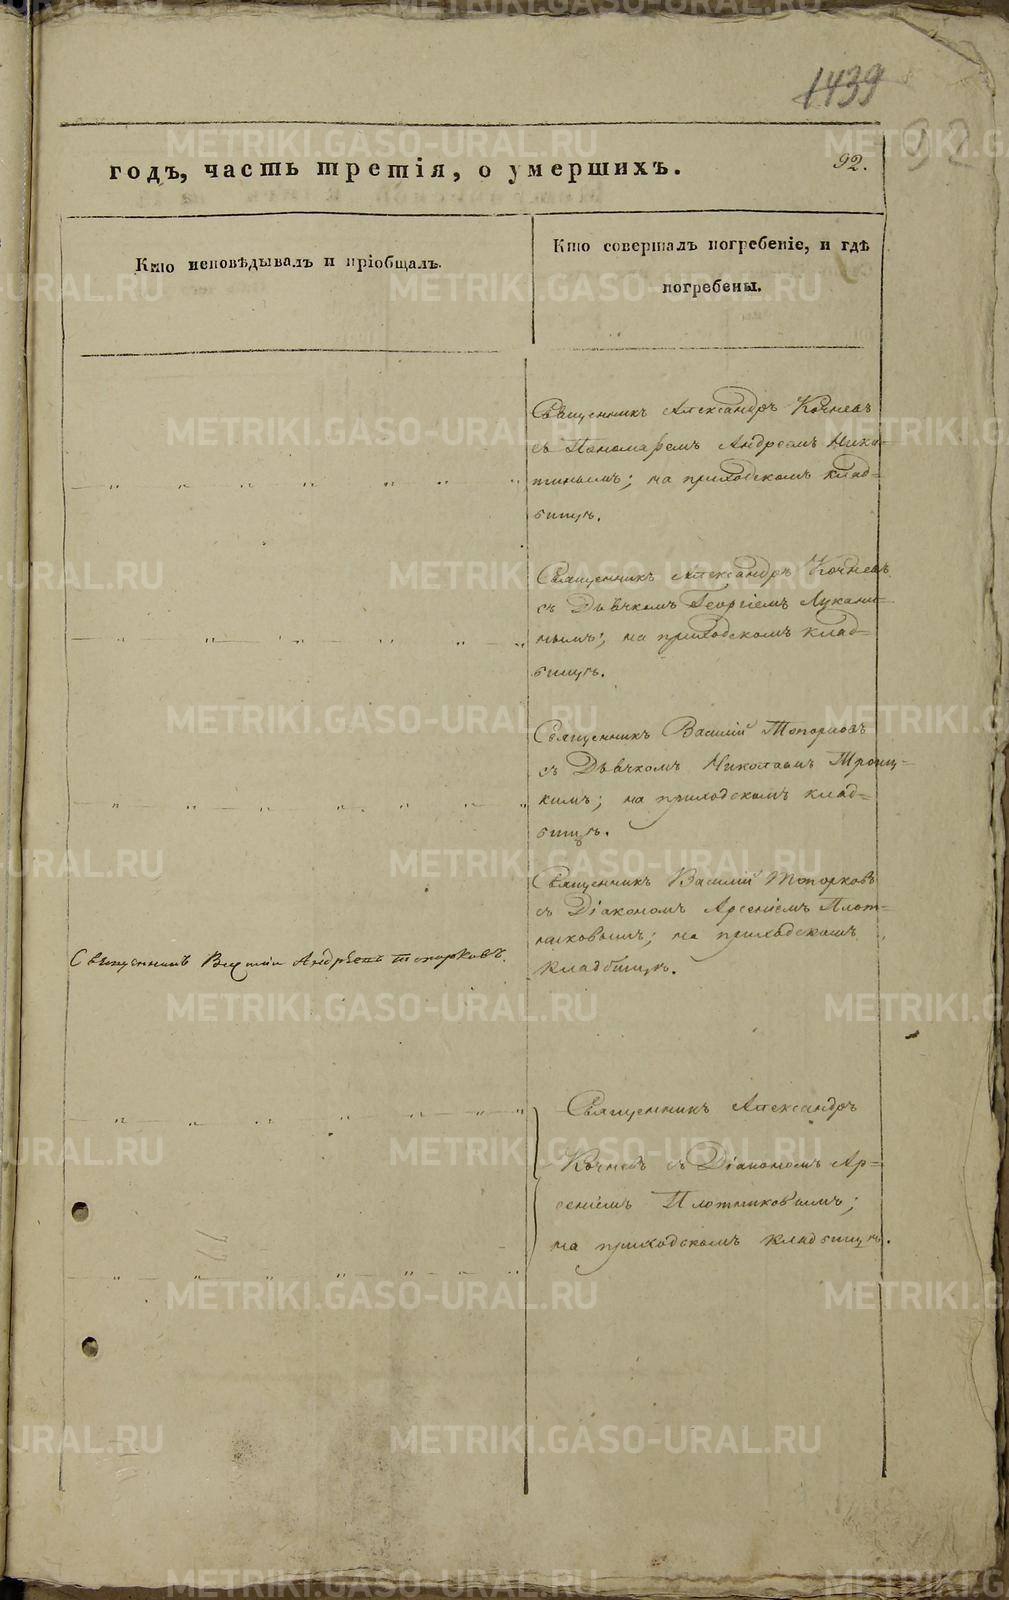 1439
92
годъ, часть третія, о умершихъ.
92.
Кто исповѣдывалъ и пріобщалъ.
Кто совершалъ погребеніе, и гдѣ
погребены.
Священникъ Александръ Кочневъ
съ Пономаремъ Андреемъ Ники-
тинымъ; на приходскомъ клад-
бищѣ.
Священникъ Александръ Кочневъ
съ Дьячкомъ Георгіемъ Лукани-
нымъ; на приходскомъ клад-
бищѣ.
Священникъ Василій Топорковъ
съ Дьячкомъ Николаемъ Троиц-
кимъ; на приходскомъ клад-
бищѣ.
Священникъ Василій Топорковъ
съ Діакономъ Арсеніемъ Плот-
никовымъ; на приходскомъ
кладбищѣ.
Священникъ Василій Андреевъ Топорковъ.
Священникъ Александръ
Кочневъ съ Діакономъ Ар-
сеніемъ Плотниковымъ;
на приходскомъ кладбищѣ.
METRIKI.GASO-URAL.RU